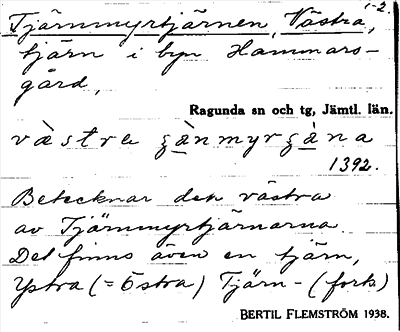 1-2.
Tjärnmyrtjärnen, Västra,
tjärn i byn Hammars-
gård,
Ragunda sn och tg, Jämtl. län.
västra gànmyrgàna
1392.
Betecknar den västra
av Tjärnmyrtjärnarna.
Det finns även en tjärn,
Ystra (= Östra) Tjärn- (forts)
BERTIL FLEMSTRÖM 1938.